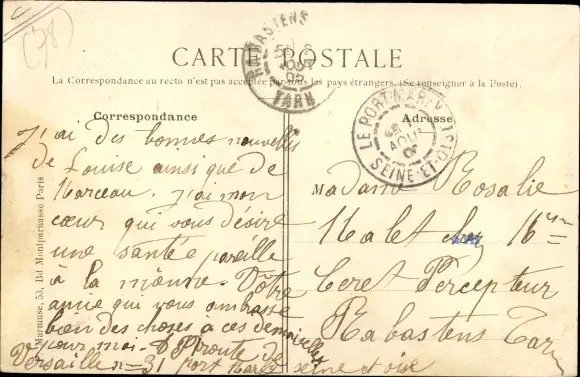 (78)
CARTE POSTALE
La Correspondance au recto n'est pas acceptée par tous les pays étrangers. (Se renseigner à la Poste).
RABASTENS
TARN
LE PORT-MARLY
AOUT
SEINE-ET-OISE
Correspondance
Adresse
J'ai des bonnes nouvelles
de Louise ainsi que de
Marceau. J'ai mon
cœur qui vous désire
une santé pareille
à la mienne. Vôtre
amie qui vous embrasse
bien des choses a ces demoiselles
pour moi. route de
Versaille n= 31 Port Marly seine et oise
Madame Rosalie
Malet chez
Ceret Percepteur
Rabastens Tarn
Marmuse, 53, Bd Montparnasse Paris